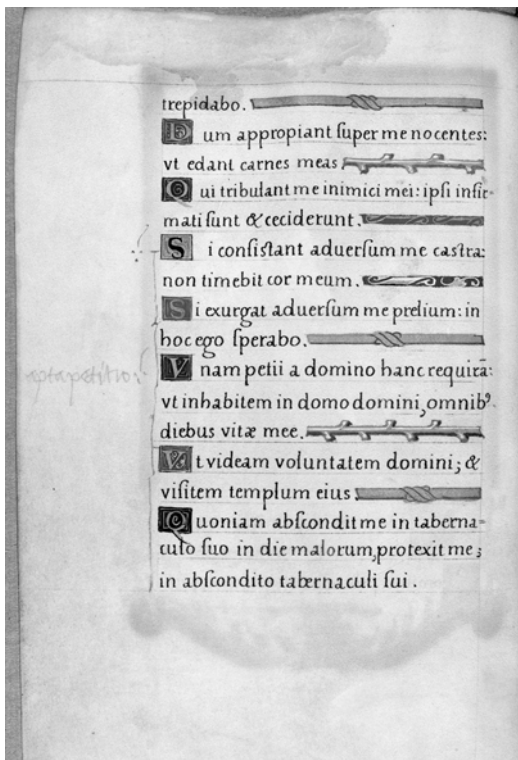 trepidabo.
Dum appropiant ſuper me nocentes:
vt edant carnes meas
Qui tribulant me inimici mei: ipſi infir-
mati ſunt & ceciderunt.
Si conſiſtant aduerſum me caſtra:
non timebit cor meum.
Si exurgat aduerſum me prelium: in
hoc ego ſperabo.
Vnam petii a domino hanc requirā:
aptapetitio.
vt inhabitem in domo domini, omnibꝰ
diebus vitæ mee.
Vt videam voluntatem domini; &
viſitem templum eius
Quoniam abſcondit me in taberna-
culo ſuo in die malorum, protexit me;
in abſcondito tabernaculi ſui.